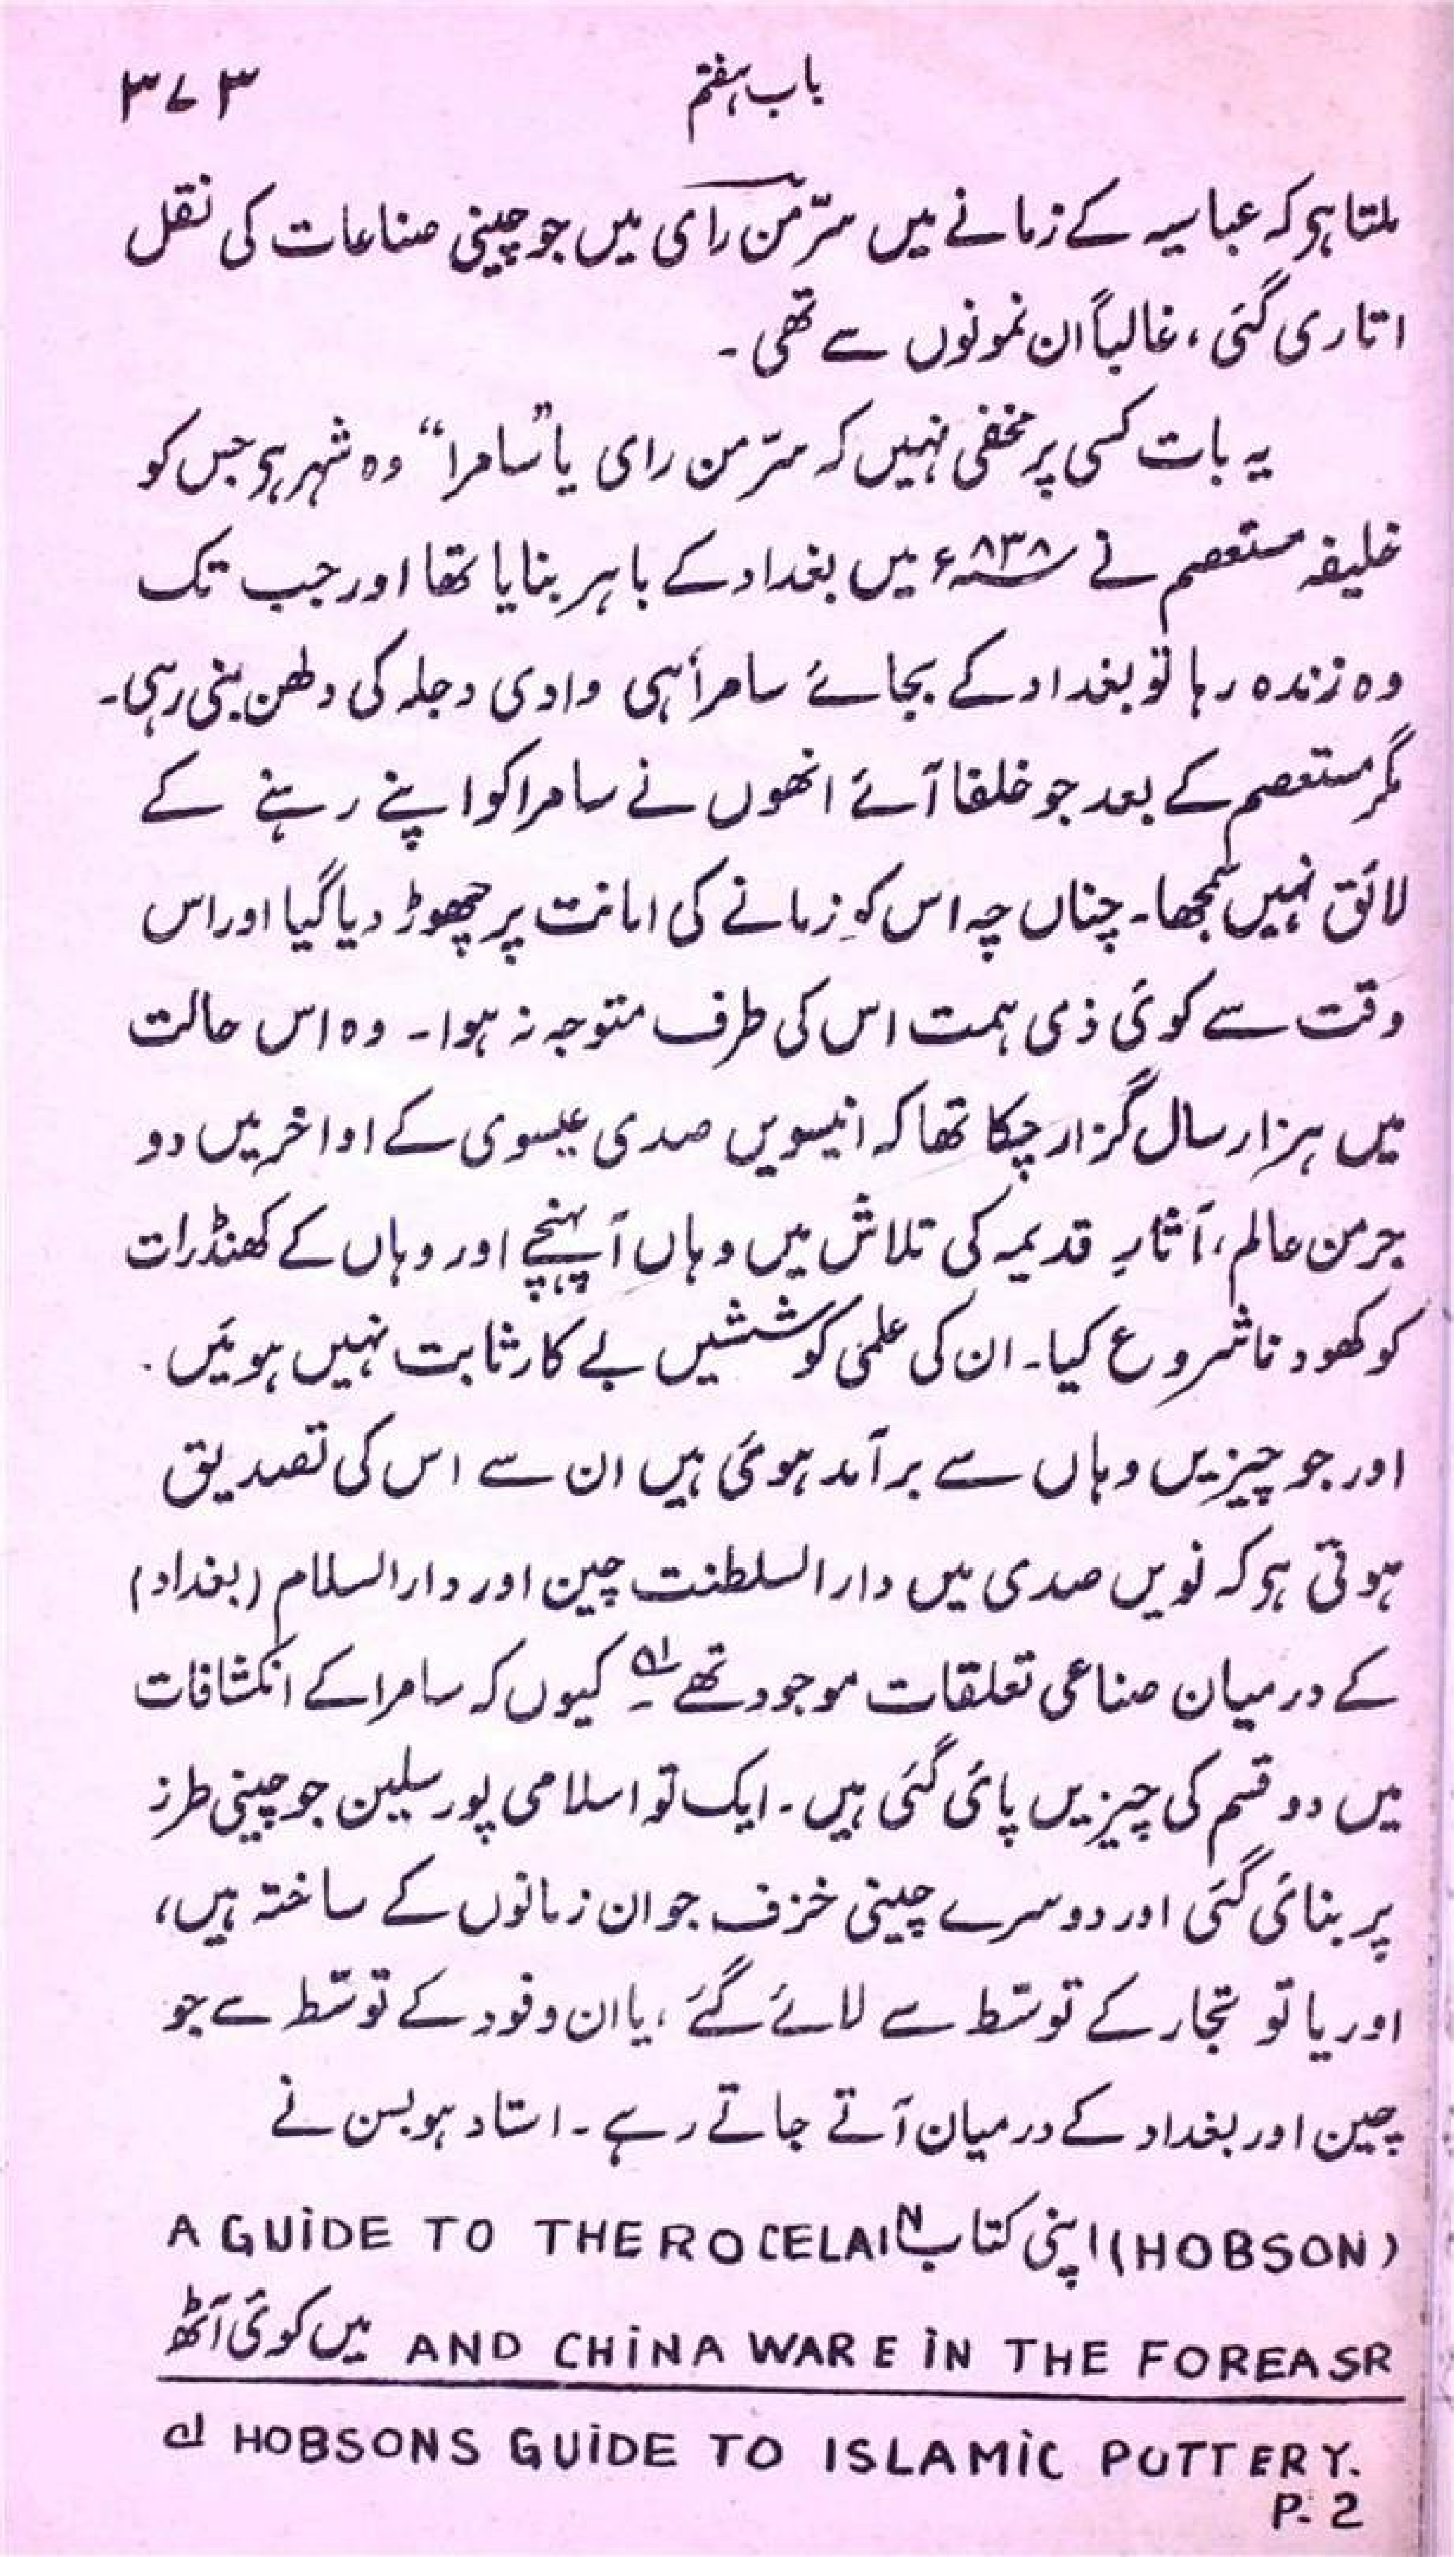 باب ہفتم ۳۷۳
ملتا ہی کہ عباسیہ کے زمانے میں سرّ من رای میں جو چینی صناعات کی نقل
اتاری گئی، غالباً ان نمونوں سے تھی۔
یہ بات کسی پر مخفی نہیں کہ سرّ من رای یا "سامرا" وہ شہر ہی جس کو
خلیفہ مستعصم نے ۸۳۸ء میں بغداد کے باہر بنایا تھا اور جب تک
وہ زندہ رہا تو بغداد کے بجائے سامرا ہی وادی دجلہ کی دلھن بنی رہی۔
مگر مستعصم کے بعد جو خلفا آئے انھوں نے سامرا کو اپنے رہنے کے
لائق نہیں سمجھا۔ چناں چہ اس کو زمانے کی امانت پر چھوڑ دیا گیا اور اس
وقت سے کوئی ذی ہمت اس کی طرف متوجہ نہ ہوا۔ وہ اس حالت
میں ہزار سال گزار چکا تھا کہ انیسویں صدی عیسوی کے اواخر میں دو
جرمن عالم، آثارِ قدیمہ کی تلاش میں وہاں آپہنچے اور وہاں کے کھنڈرات
کو کھودنا شروع کیا۔ ان کی علمی کوششیں بے کار ثابت نہیں ہوئیں۔
اور جو چیزیں وہاں سے برآمد ہوئی ہیں ان سے اس کی تصدیق
ہوتی ہی کہ نویں صدی میں دارالسلطنت چین اور دارالسلام (بغداد)
کے درمیان صناعی تعلقات موجود تھے ۱؎ کیوں کہ سامرا کے انکشافات
میں دو قسم کی چیزیں پائی گئی ہیں۔ ایک تو اسلامی پورسلین جو چینی طرز
پر بنائی گئی اور دوسرے چینی خزف جو ان زمانوں کے ساختہ ہیں،
اور یا تو تجار کے توسّط سے لائے گئے، یا ان وفود کے توسّط سے جو
چین اور بغداد کے درمیان آتے جاتے رہے۔ استاد ہوبسن نے
(HOBSON) اپنی کتاب A GUIDE TO THE ROCELAIN
AND CHINA WARE IN THE FOREASR میں کوئی آٹھ
۱؎ HOBSONS GUIDE TO ISLAMIC POTTERY.
P- 2